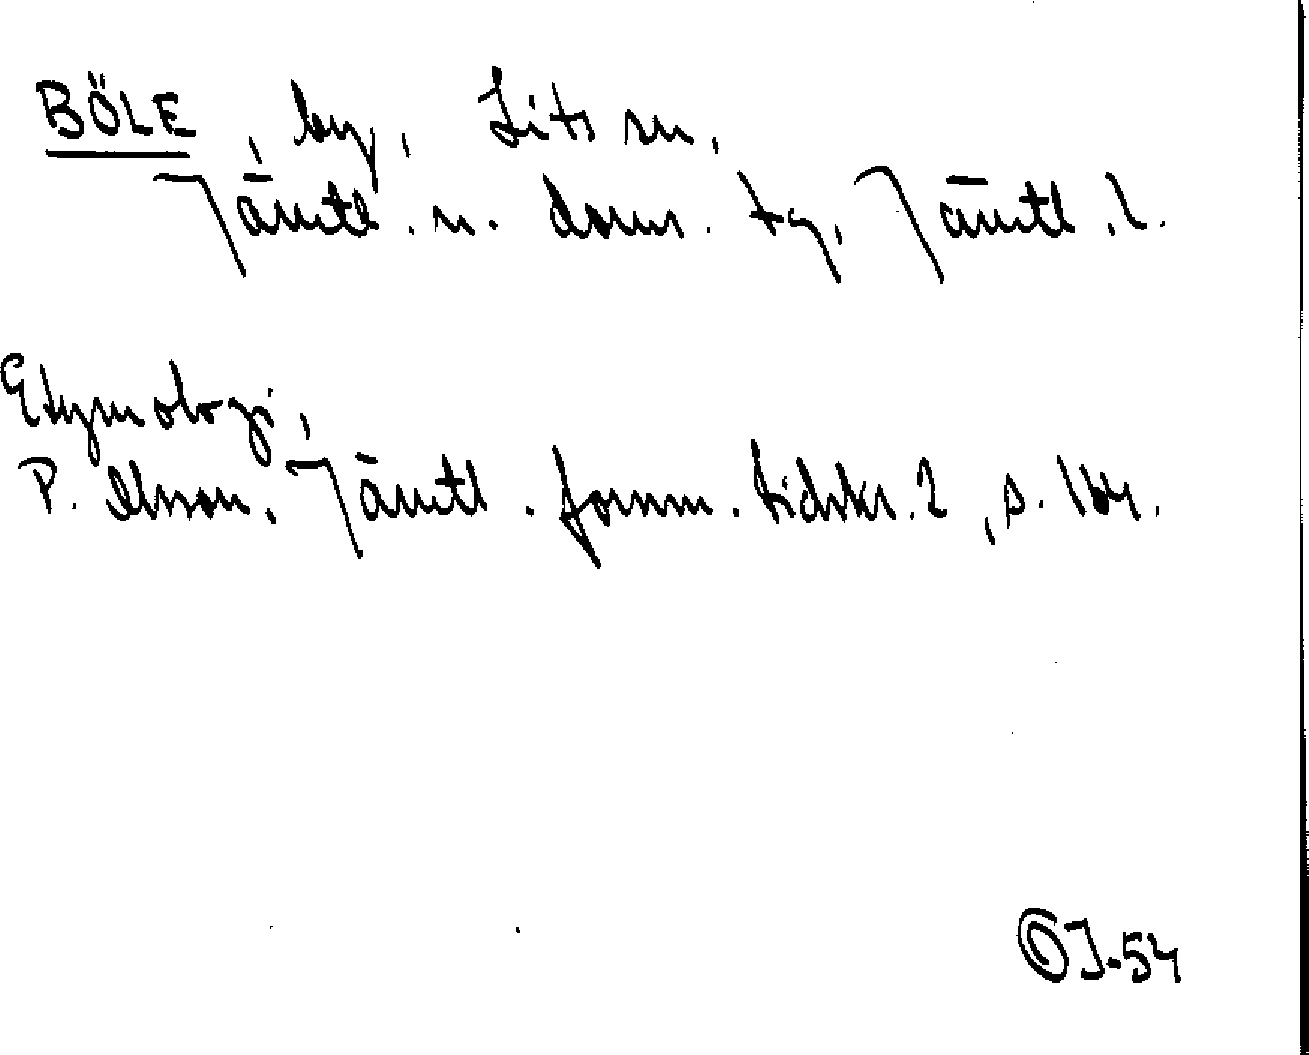 BÖLE, by, Lits sn,
Jämtl. n. doms. tg, Jämtl. l.
Etymologi,
P. Olsson. Jämtl. fornm. tidskr. 2, s. 164.
ÖJ-54